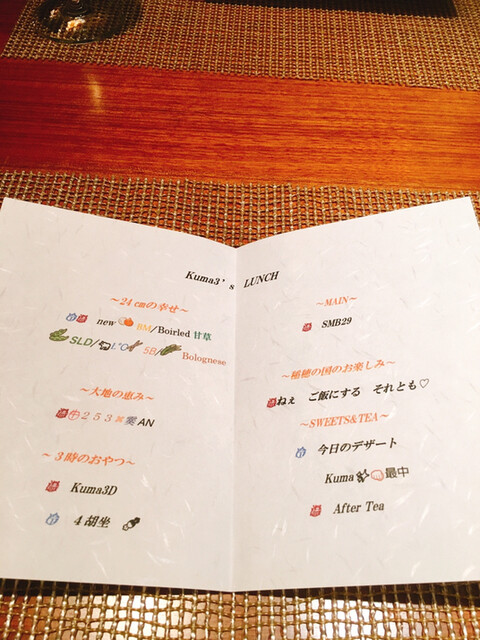 Kuma3's LUNCH
~24㎝の幸せ~
new 8M/Boirled 甘草
SLD/ L'O 5B/ Bolognese
~大地の恵み~
牛253 AN
~3時のおやつ~
Kuma3D
4胡坐
~MAIN~
SMB29
~稲穂の国のお楽しみ~
ねぇ ご飯にする それとも♡
~SWEETS&TEA~
今日のデザート
Kuma 最中
After Tea